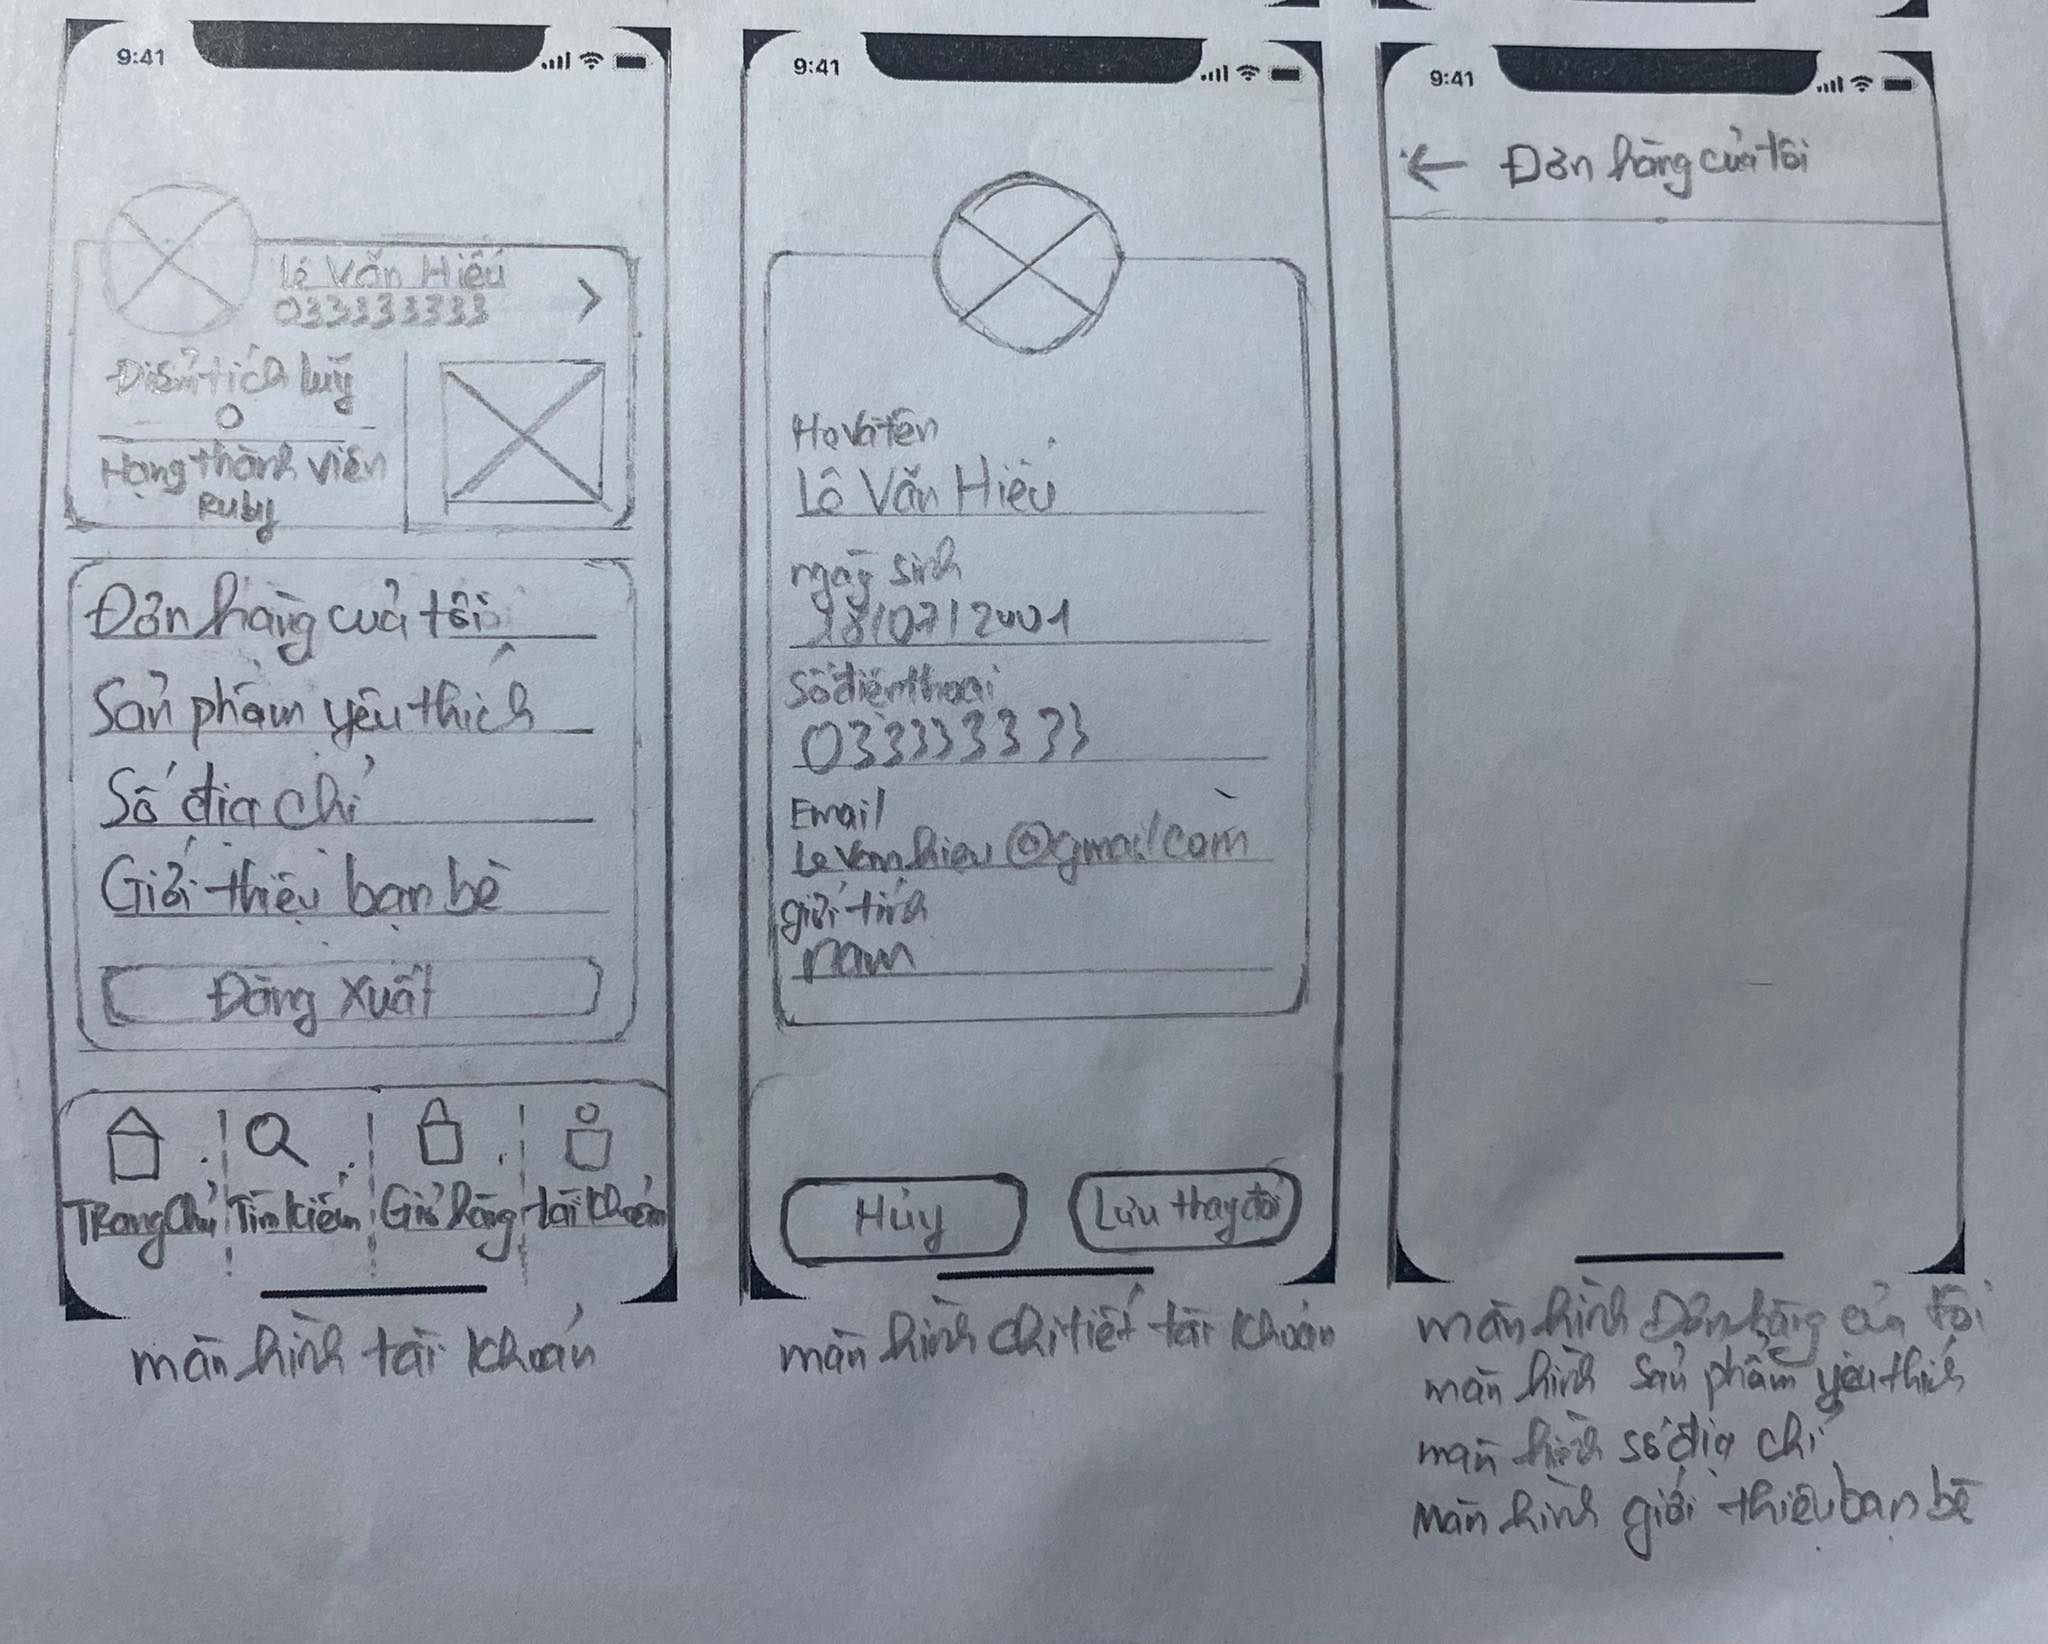 9:41
Lê Văn Hiếu
033333333
Điểm tích luỹ
0
Hạng thành viên
Ruby
Đơn hàng của tôi
Sản phẩm yêu thích
Số địa chỉ
Giới thiệu bạn bè
Đăng xuất
Trang chủ
Tìm kiếm
Giỏ hàng
tài khoản
màn hình tài khoản
9:41
Họ và tên
Lê Văn Hiếu
ngày sinh
18/07/2001
Số điện thoại
03333333
Email
Levanhieu@gmail.com
giới tính
nam
Hủy
Lưu thay đổi
màn hình chi tiết tài khoản
9:41
← Đơn hàng của tôi
màn hình Đơn hàng của tôi
màn hình sản phẩm yêu thích
màn hình số địa chỉ
màn hình giới thiệu bạn bè